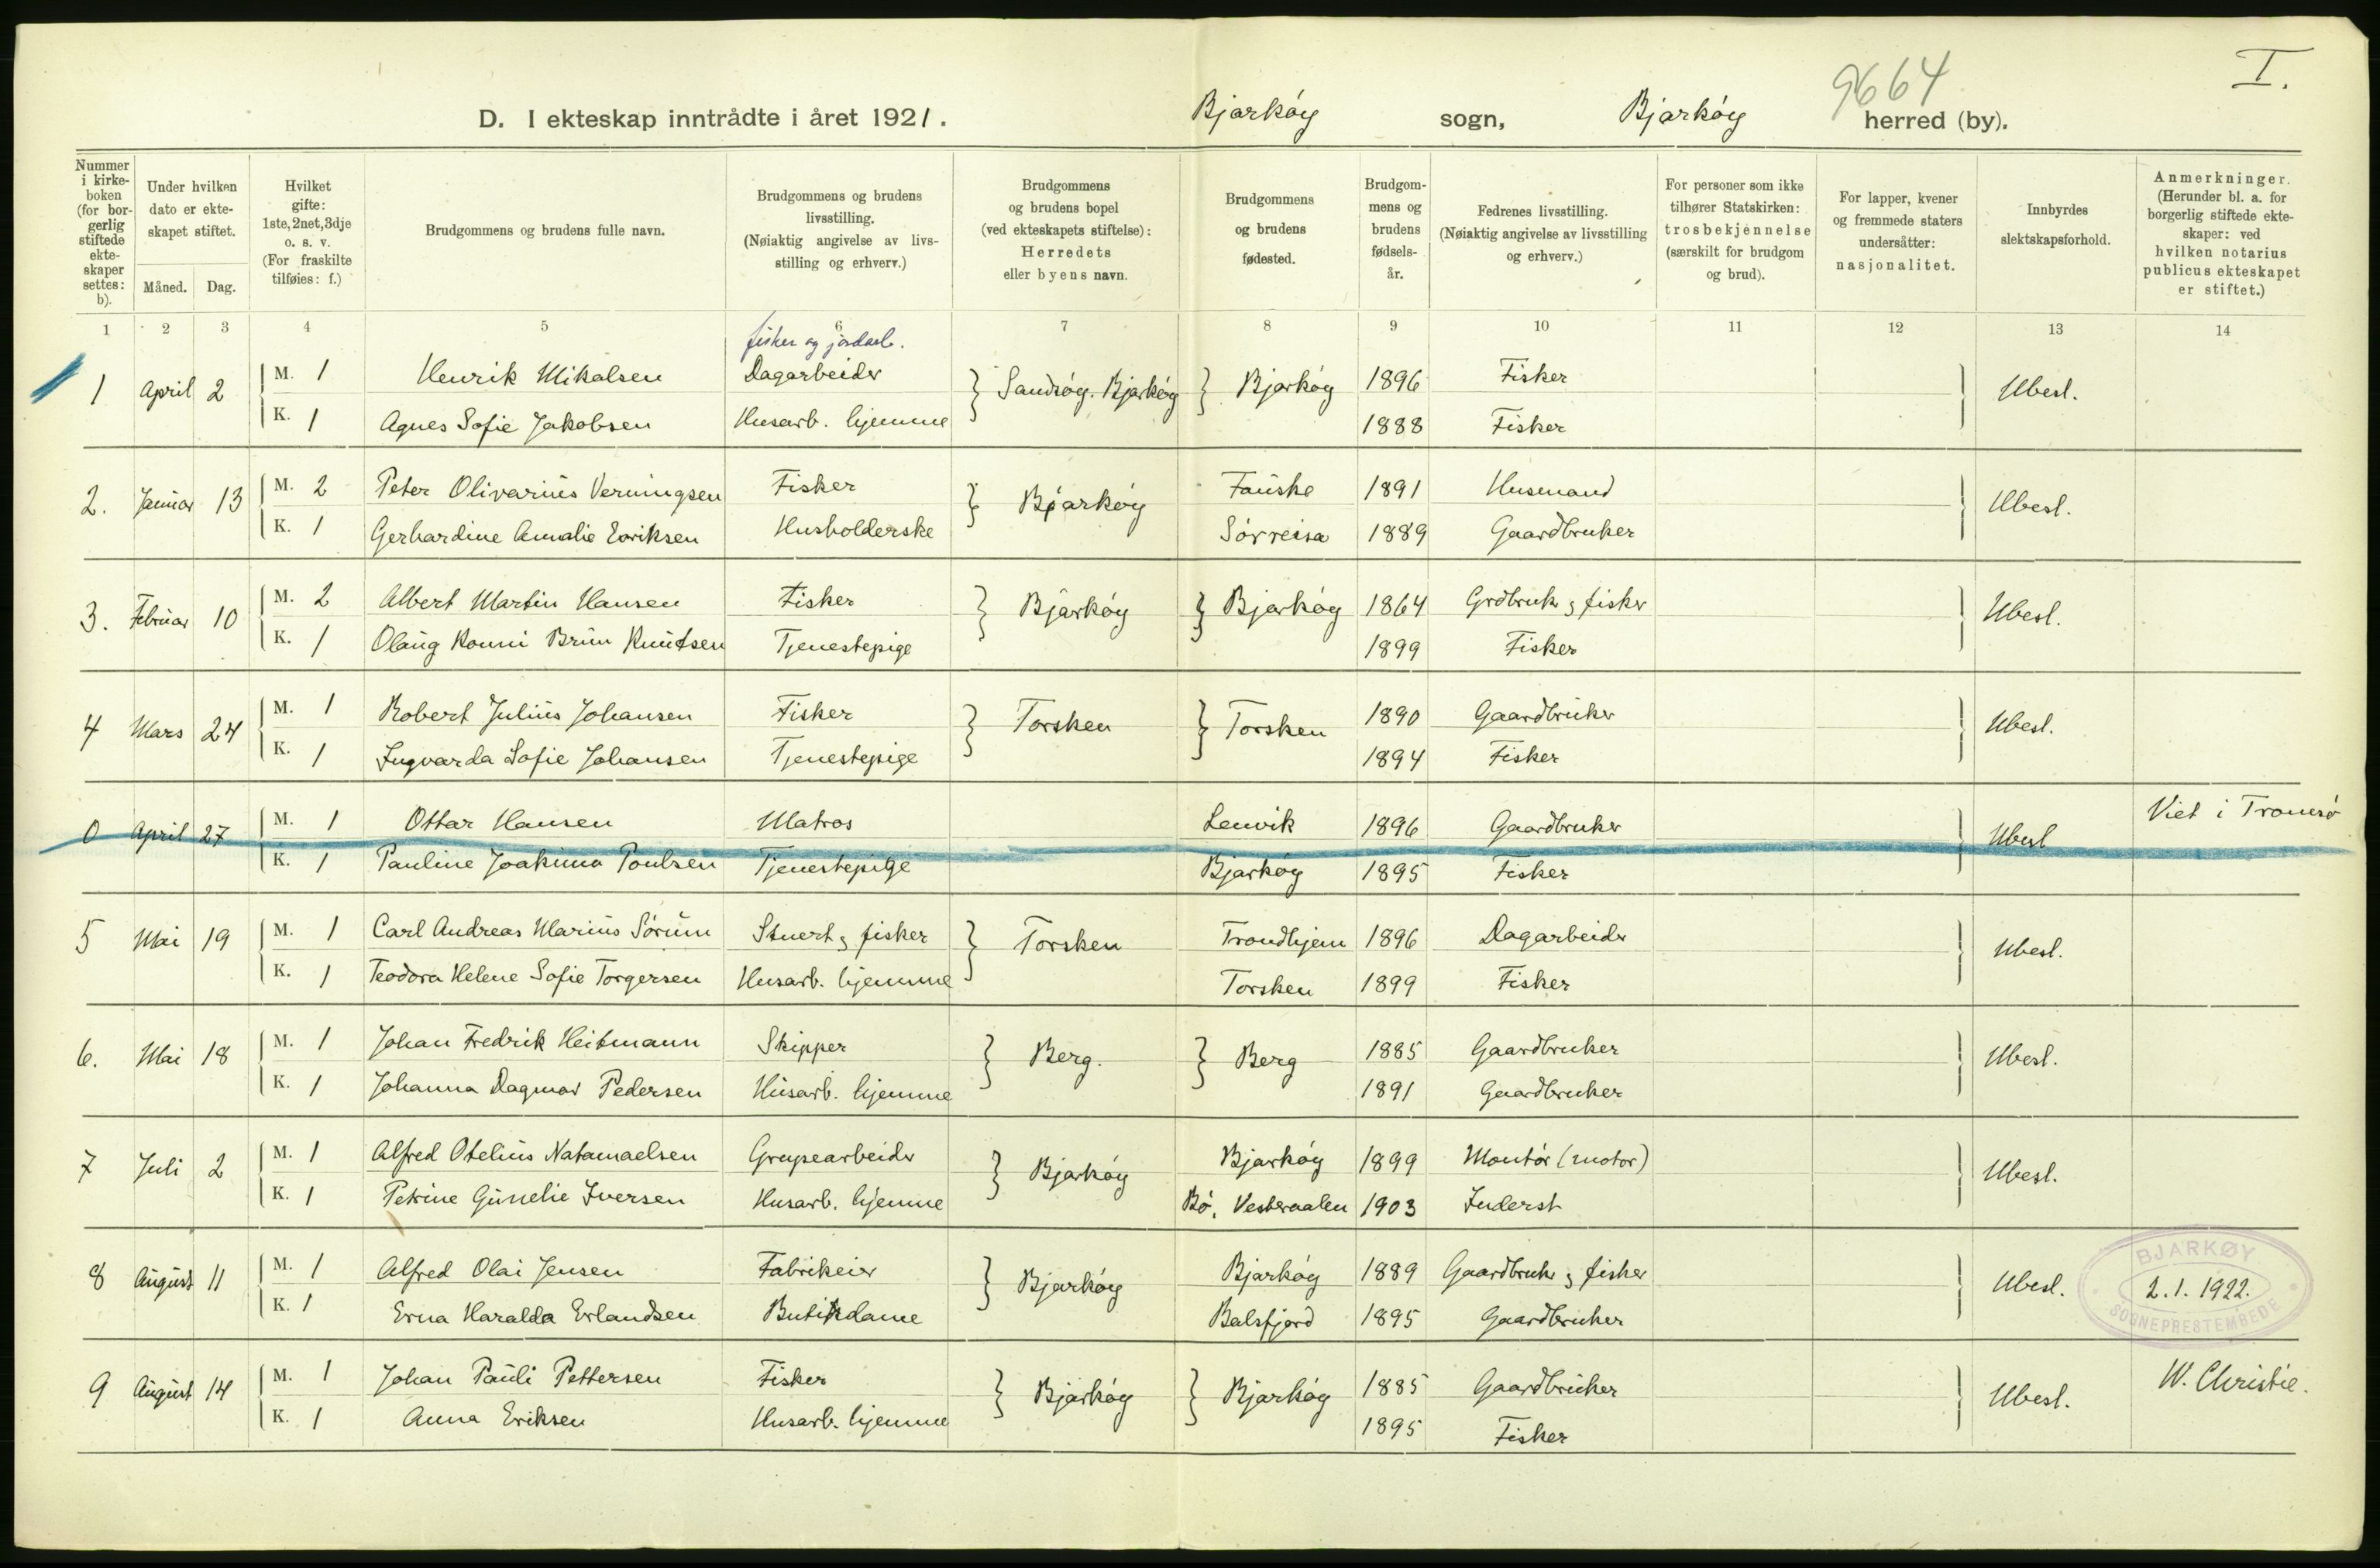 I.
9664
D. I ekteskap inntrådte i året 1921. Bjarkøy sogn, Bjarkøy herred (by).
Nummer i kirkeboken (for borgerlig stiftede ekteskaper settes: b).
Under hvilken dato er ekteskapet stiftet.
Måned. Dag.
Hvilket gifte: 1ste, 2net, 3dje o. s. v. (For fraskilte tilføies: f.)
Brudgommens og brudens fulle navn.
Brudgommens og brudens livsstilling. (Nøiaktig angivelse av livsstilling og erhverv.)
Brudgommens og brudens bopel (ved ekteskapets stiftelse): Herredets eller byens navn.
Brudgommens og brudens fødested.
Brudgommens og brudens fødselsår.
Fedrenes livsstilling. (Nøiaktig angivelse av livsstilling og erhverv.)
For personer som ikke tilhører Statskirken: trosbekjennelse (særskilt for brudgom og brud).
For lapper, kvener og fremmede staters undersåtter: nasjonalitet.
Innbyrdes slektskapsforhold.
Anmerkninger. (Herunder bl. a. for borgerlig stiftede ekteskaper: ved hvilken notarius publicus ekteskapet er stiftet.)
1 2 3 4 5 6 7 8 9 10 11 12 13 14
fisker og jordarb.
1 April 2 M. 1 Henrik Mikalsen Dagarbeider } Sandsøy. Bjarkøy } Bjarkøy 1896 Fisker } Ubesl.
K. 1 Agnes Sofie Jakobsen Husarb. hjemme 1888 Fisker
2. Januar 13 M. 2 Peter Olivarius Verningsen Fisker } Bjarkøy Fauske 1891 Husmand } Ubesl.
K. 1 Gerhardine Amalie Eeriksen Husholderske Sørreisa 1889 Gaardbruker
3. Februar 10 M. 2 Albert Martin Hansen Fisker } Bjarkøy } Bjarkøy 1864 Grdbruk og fisker } Ubesl.
K. 1 Olaug Konni Brun Knutsen Tjenestepige 1899 Fisker
4 Mars 24 M. 1 Robert Julius Johansen Fisker } Torsken } Torsken 1890 Gaardbruker } Ubesl.
K. 1 Ingvarda Sofie Johansen Tjenestepige 1894 Fisker
0 April 27 M. 1 Ottar Hansen Matros Lenvik 1896 Gaardbruker } Ubesl Viet i Tromsø
K. 1 Pauline Joakima Poulsen Tjenestepige Bjarkøy 1895 Fisker
5 Mai 19 M. 1 Carl Andreas Marius Sørum Stuert og fisker } Torsken Trondhjem 1896 Dagarbeider } Ubesl.
K. 1 Teodora Helene Sofie Torgersen Husarb. hjemme Torsken 1899 Fisker
6. Mai 18 M. 1 Johan Fredrik Heitmann Skipper } Berg. } Berg 1885 Gaardbruker } Ubesl.
K. 1 Johanna Dagmar Pedersen Husarb. hjemme 1891 Gaardbruker
7 Juli 2 M. 1 Alfred Otelius Natanaelsen Grupearbeider } Bjarkøy Bjarkøy 1899 Montør (motor) } Ubesl.
K. 1 Petrine Gunelie Iversen Husarb. hjemme Bø, Vesteraalen 1903 Inderst
8 August 11 M. 1 Alfred Olai Jensen Fabrikeier } Bjarkøy Bjarkøy 1889 Gaardbruker og fisker } Ubesl.
K. 1 Erna Haralda Erlandsen Butikdame Balsfjord 1895 Gaardbruker
BJARKØY
2.1.1922.
SOGNEPRESTEMBEDE
9 August 14 M. 1 Johan Pauli Pettersen Fisker } Bjarkøy } Bjarkøy 1885 Gaardbruker } Ubesl. W. Christie.
K. 1 Anna Eriksen Husarb. hjemme 1895 Fisker